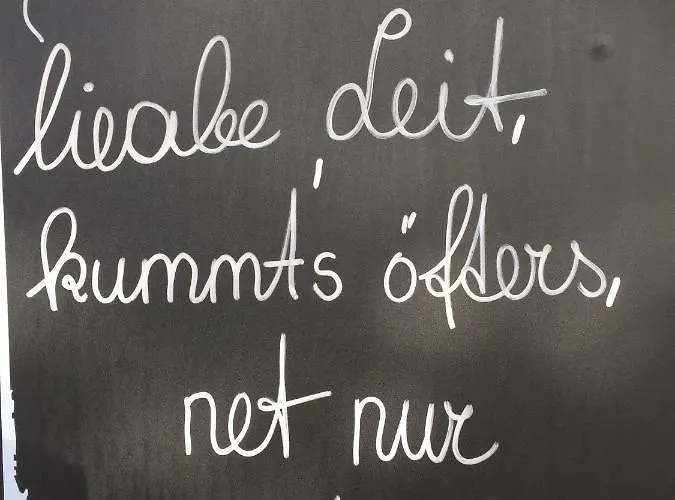 lieabe Leit,
kummts öfters,
net nur